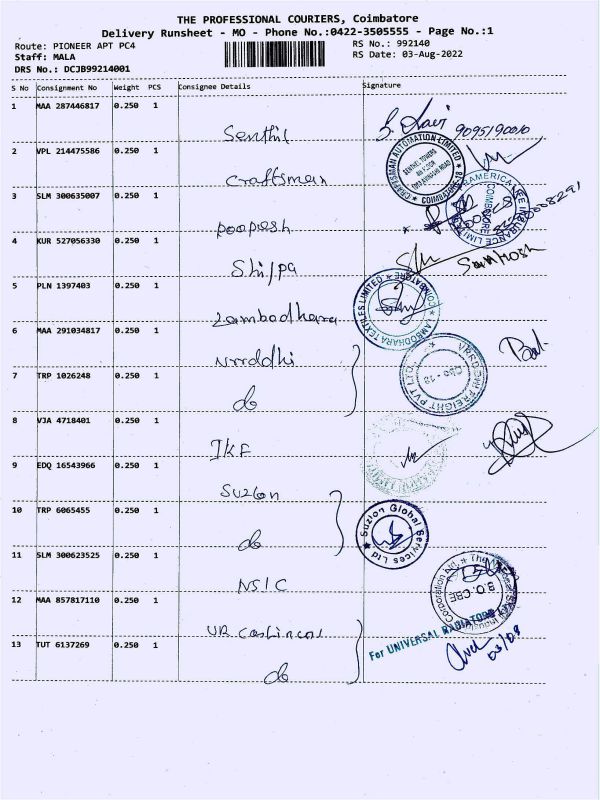 THE PROFESSIONAL COURIERS, Coimbatore
Delivery Runsheet - MO - Phone No.:0422-3505555 - Page No.:1
Route: PIONEER APT PC4 RS No.: 992140
Staff: MALA RS Date: 03-Aug-2022
DRS No.: DCJB99214001
S No Consignment No Weight PCS Consignee Details Signature
1 MAA 287446817 0.250 1
Senthil 9095190010
2 VPL 214475586 0.250 1
Craftsman
CRAFTSMAN AUTOMATION LIMITED
SENTHIL TOWERS
COIMBATORE-18
3 SLM 300635007 0.250 1
poopesh
COIMBATORE
4 KUR 527056330 0.250 1
Shilpa Santhosh
5 PLN 1397403 0.250 1
Lambodhara
LAMBODHARA TEXTILES LIMITED
COIMBATORE
6 MAA 291034817 0.250 1
Vrrddhi
7 TRP 1026248 0.250 1
do
VRRDDHI FREIGHT PVT LTD.
CBE - 18
8 VJA 4718401 0.250 1
IKF
9 EDQ 16543966 0.250 1
Suzlon
10 TRP 6065455 0.250 1
do
Suzlon Global Services Ltd
11 SLM 300623525 0.250 1
NSIC
B.O. CBE
12 MAA 857817110 0.250 1
UR Castings
For UNIVERSAL RADIATORS
03/08
13 TUT 6137269 0.250 1
do